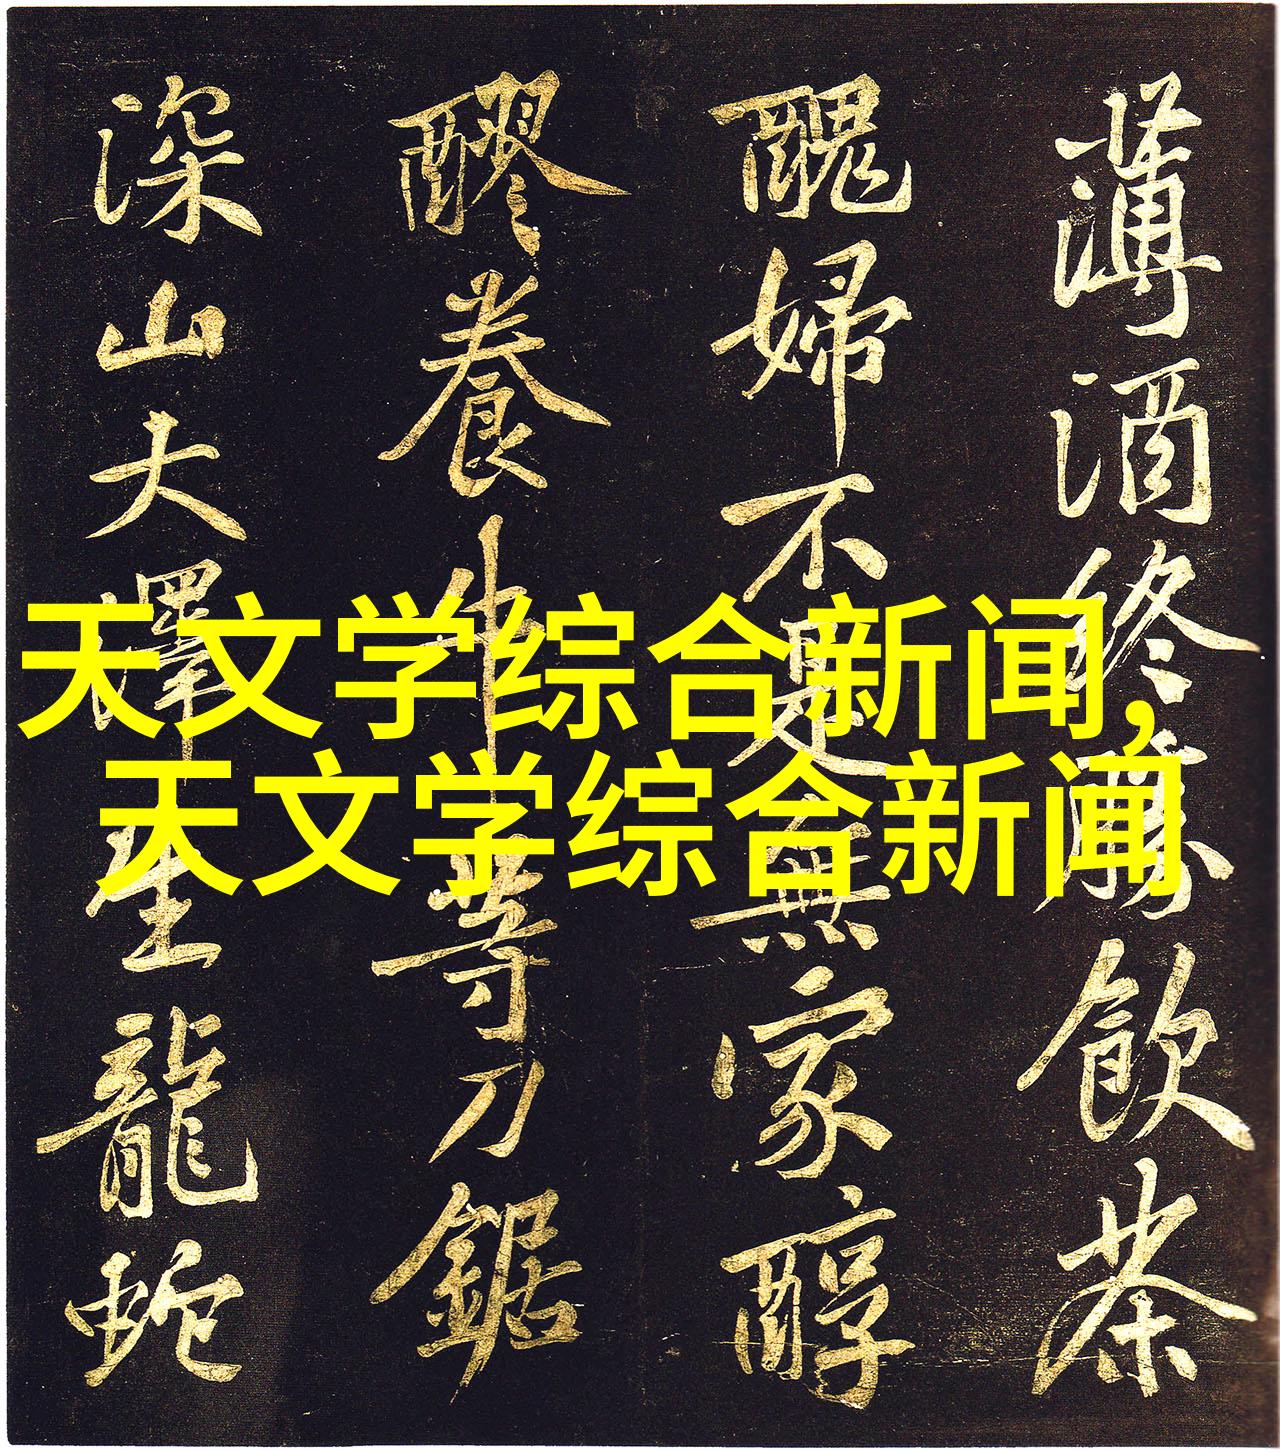 薄酒終勝飲茶
醜婦不是無家醇
醪養牛等刀鋸
深山大澤生龍蛇
天文学综合新闻,
天文学综合新闻